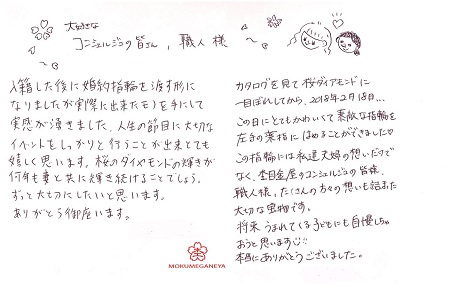 大好きな
コンシェルジュの皆さん、職人様
入籍した後に婚約指輪を渡す形に
なりましたが実際に出来たモノを手にして
実感が湧きました。人生の節目に大切な
イベントをしっかりと行うことが出来とても
嬉しく思います。桜のダイヤモンドの輝きが
何年も妻と共に輝き続けることでしょう。
ずっと大切にしたいと思います。
ありがとう御座います。
カタログを見て桜ダイアモンドに
一目ぼれしてから、2018年2月18日...
この日にとてもかわいくて素敵な指輪を
左手の薬指にはめることができました♡
この指輪には私達夫婦の想いだけで
なく、杢目金屋のコンシェルジュの皆様、
職人様、たくさんの方々の想いも詰まった
大切な宝物です。
将来うまれてくる子どもにも自慢しちゃ
おうと思います
本当にありがとうございました。
MOKUMEGANEYA